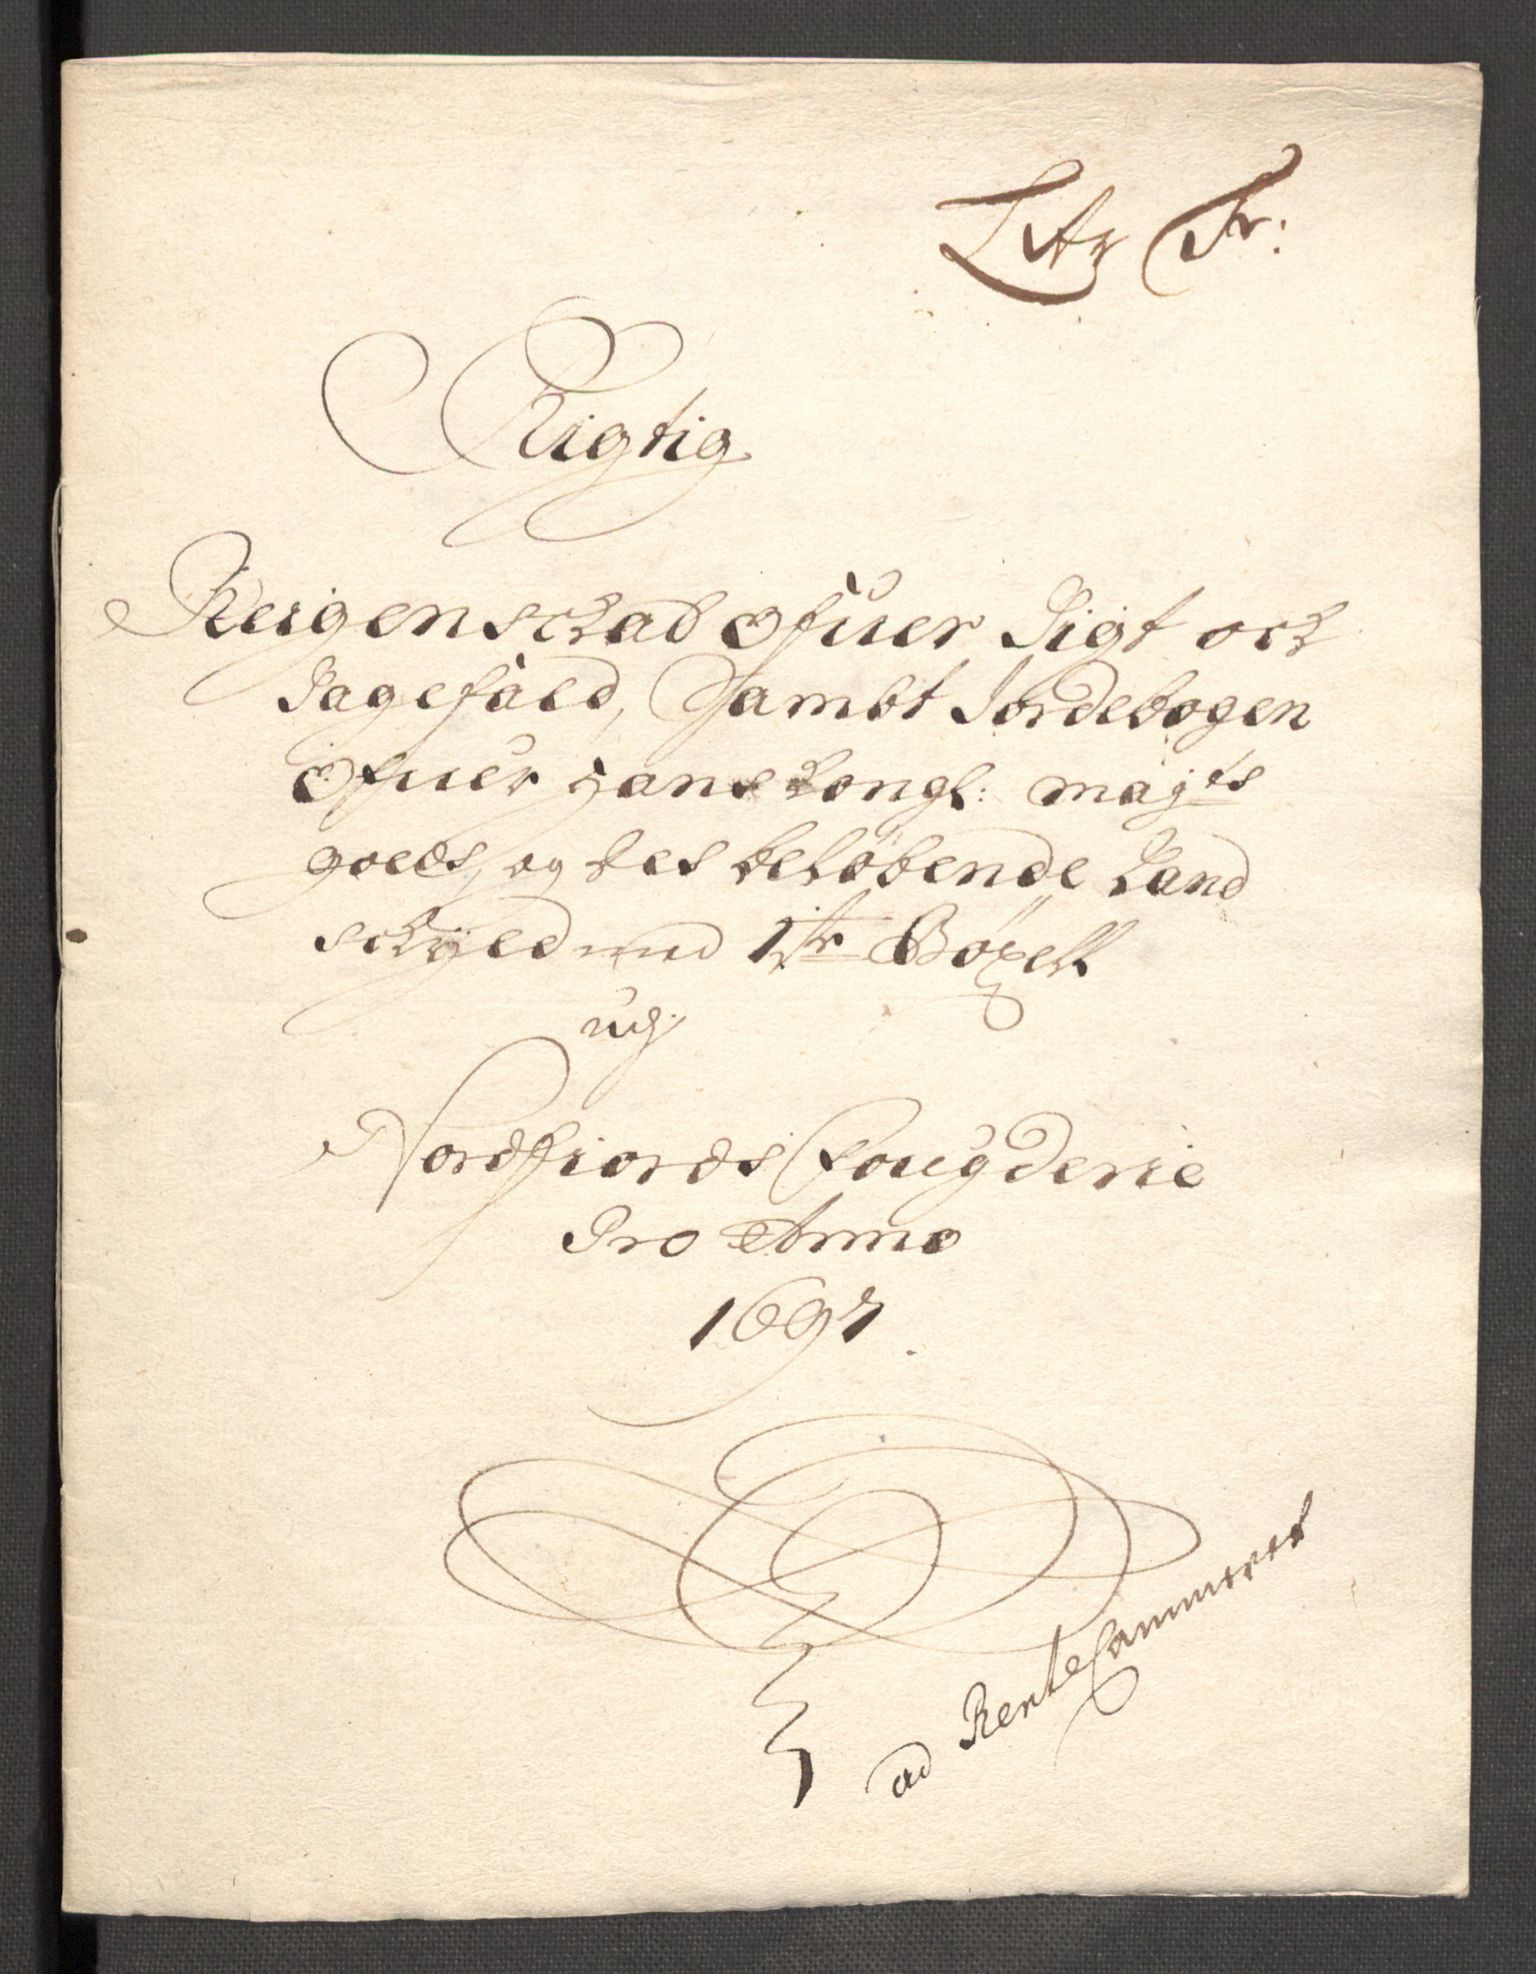 Litr Fr:
Rigtig
Reigenschab Ofuer Sigt och
Sagefald, Sambt Jordebogen
Ofuer Hans Kongl: Majts
goeds, og des beløbende Land
schyld med 1ste Böxell
udj
Nordfiords Fougderie
Pro Anno
1697.
ad RenteCammeret